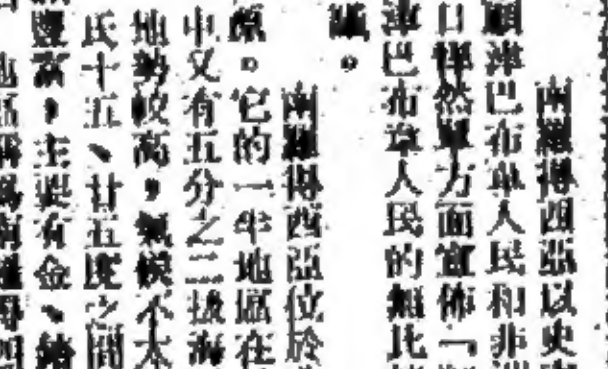 南羅得西亞以史
津巴布韋人民和非洲
日悍然單方面宣佈「
津巴布韋人民的無比
。
南羅得西亞位於
原。它的一半地區在
中又有五分之二拔海
地勢較高，氣候不太
氏十五、廿五度之間
豐富，主要有金、鉻